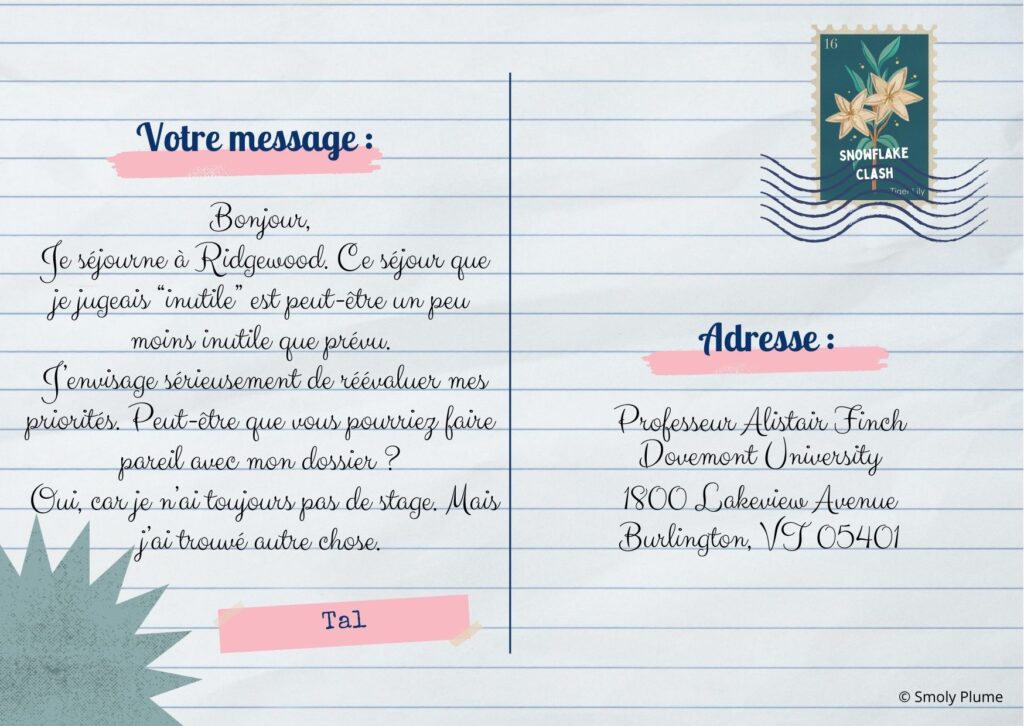 16
SNOWFLAKE
CLASH
Tiger Lily
Votre message :
Bonjour,
Je séjourne à Ridgewood. Ce séjour que
je jugeais “inutile” est peut-être un peu
moins inutile que prévu.
J’envisage sérieusement de réévaluer mes
priorités. Peut-être que vous pourriez faire
pareil avec mon dossier ?
Oui, car je n’ai toujours pas de stage. Mais
j’ai trouvé autre chose.
Tal
Adresse :
Professeur Alistair Finch
Dovemont University
1800 Lakeview Avenue
Burlington, VT 05401
© Smoly Plume